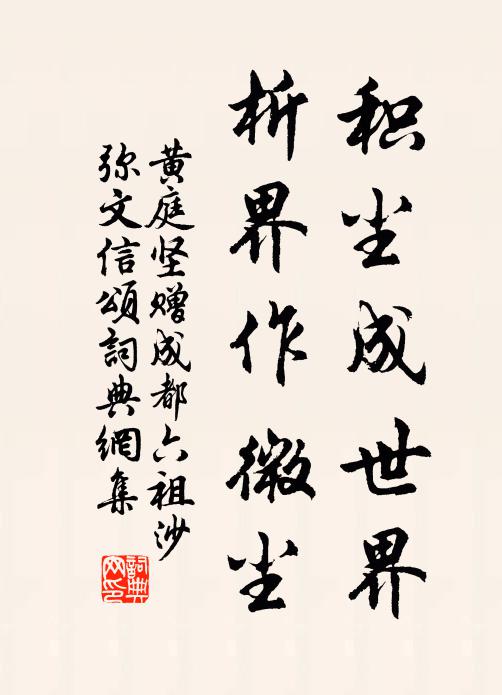 积尘成世界
析界作微尘
黄庭坚赠成都六祖沙
弥文信颂詞典網集
詞典
网印